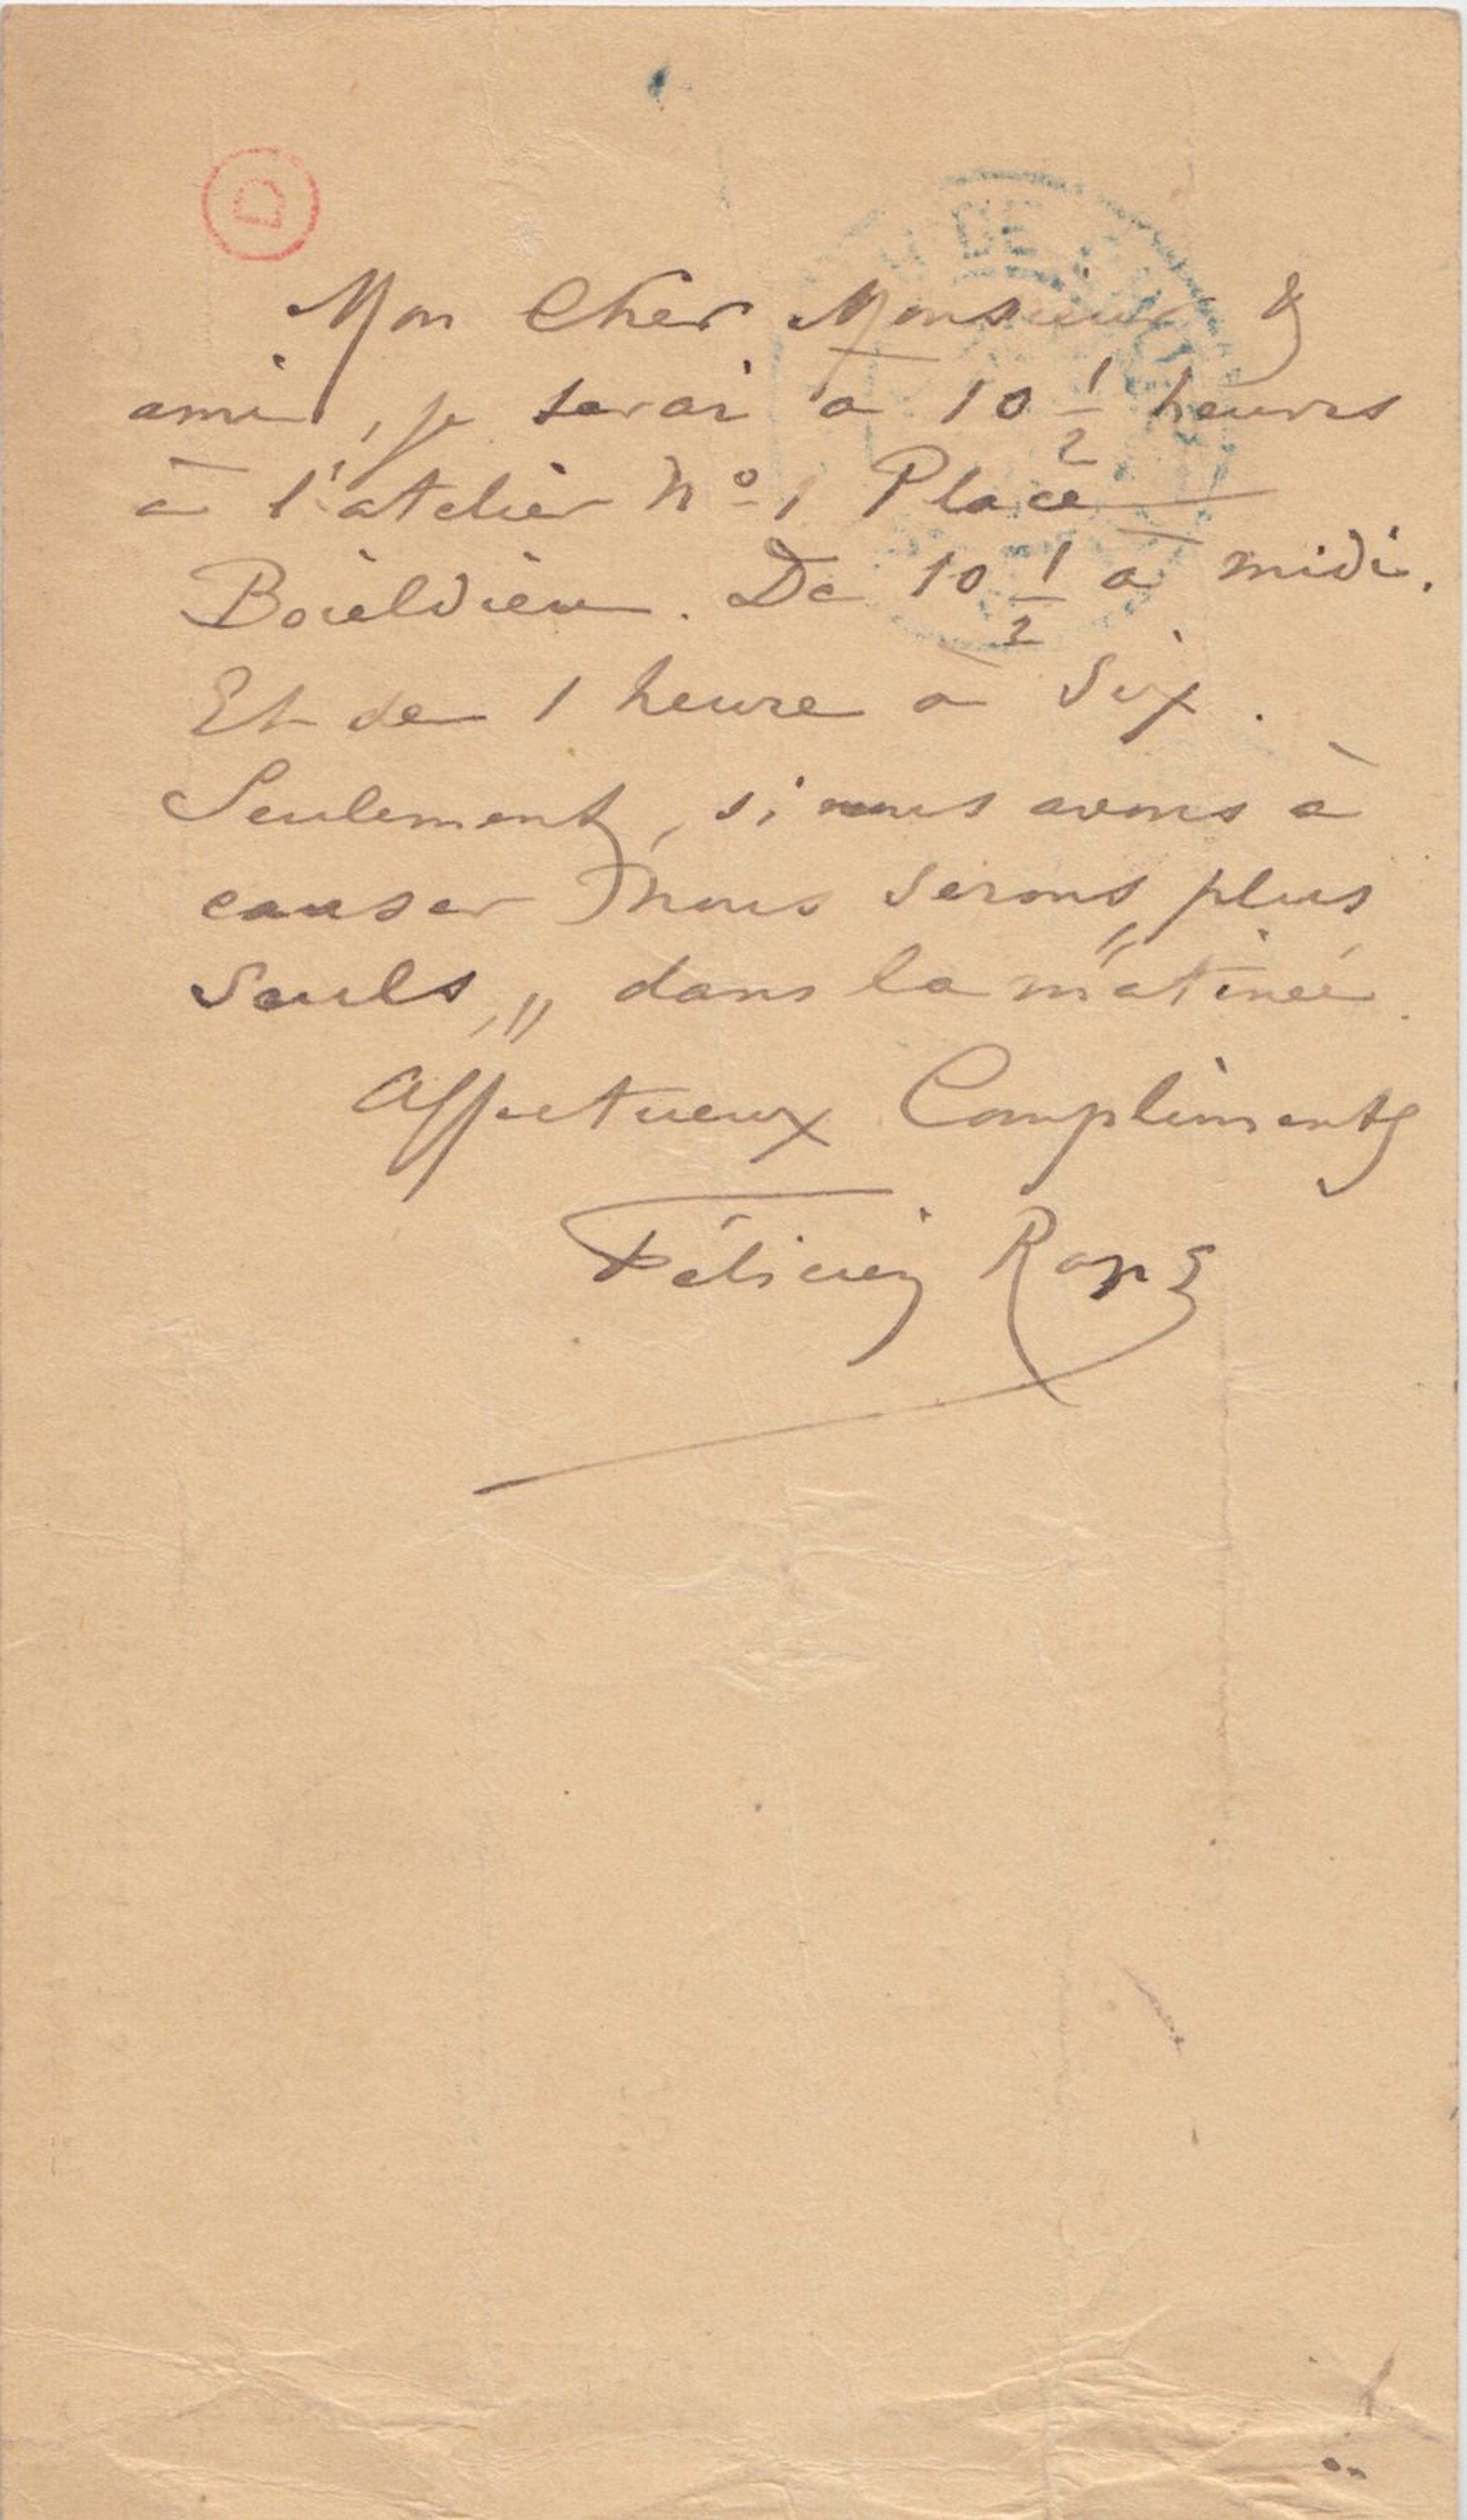 D
DE
Mon Cher Monsieur &
ami, je serai à 10 1/2 heures
à l'atelier No 1 Place
Boieldieu. De 10 1/2 à midi.
Et de 1 heure à Six.
Seulement, si nous avons à
causer nous serons „plus
seuls,„ dans la matinée.
Affectueux Compliments
Félicien Rops